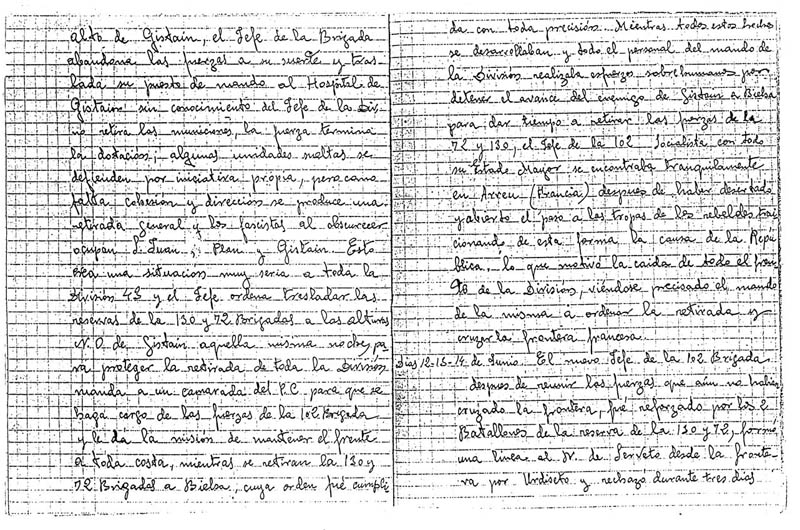 alto de Gistain, el Jefe de la Brigada
abandona las fuerzas a su suerte y tras-
lada su puesto de mando al Hospital de
Gistain sin conocimiento del Jefe de la Div.
no retira las municiones, la fuerza termina
la dotación, algunas unidades sueltas se
defienden por iniciativa própia, pero como
falta cohesión y dirección se produce una
retirada general y los fascistas al obscurecer
ocupan S. Juan, Plan y Gistain. Esto
crea una situación muy seria a toda la
División 43 y el Jefe ordena trasladar las
reservas de la 130 y 72 Brigadas a las alturas
N.O. de Gistain aquella misma noche, pa-
ra proteger la retirada de toda la División
manda a un camarada del P.C. para que se
haga cargo de las fuerzas de la 102 Brigada
y le da la misión de mantener el frente
a toda costa, mientras se retiran la 130 y
72 Brigadas a Bielsa, cuya orden fué cumpli-
da con toda precisión. Mientras todos estos hechos
se desarrollaban y todo el personal del mando de
la División realizaba esfuerzos sobrehumanos por
detener el avance del enemigo de Gistain a Bielsa
para dar tiempo a retirar las fuerzas de la
72 y 130, el Jefe de la 102 Socialista con todo
su Estado Mayor se encontraba tranquilamente
en Arreu (Francia) despues de haber desertado
y abierto el paso a las tropas de los rebeldes trai-
cionando de esta forma la causa de la Repú-
blica, lo que motivó la caida de todo el fren-
te de la División, viéndose precisado el mando
de la misma a ordenar la retirada y
cruzar la frontera francesa.
Dias 12-13-14 de Junio. El nuevo Jefe de la 102 Brigada
despues de reunir las fuerzas que aún no habian
cruzado la frontera, fué reforzado por los 2
Batallones de la reserva de la 130 y 72, formó
una linea al N. de Serveto desde la fronte-
ra por Urdiceto y rechazó durante tres dias